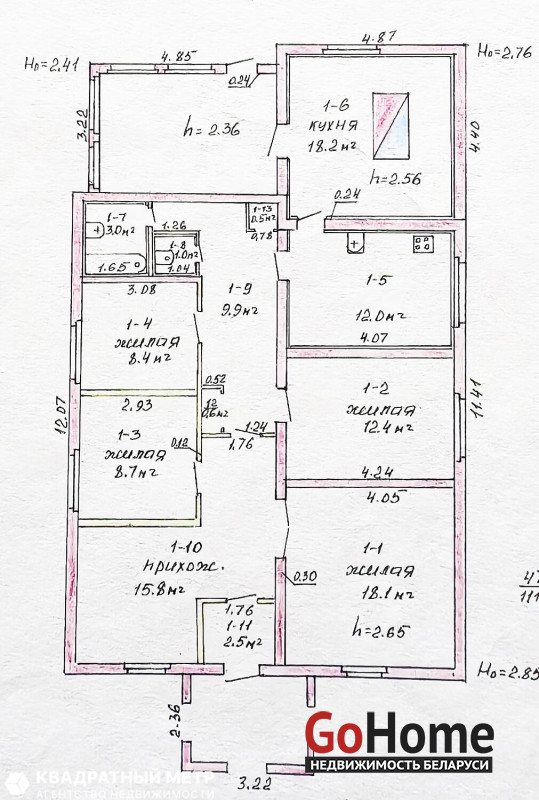 Hп=2.41
4.85
4.87
Hп=2.76
0.24
3.22
h=2.36
1-6
кухня
18.2 м²
h=2.56
4.40
0.24
1-7
3.0м²
1.65
1.26
1-8
1.0м²
1.04
1-13
0.5м²
0.78
1-9
9.9м²
1-5
12.0м²
4.07
3.08
1-4
жилая
8.4м²
0.52
12
0.6м²
1-2
жилая
12.4м²
4.24
11.41
12.07
2.93
1-3
жилая
8.7м²
0.12
1.24
1.76
4.05
1-10
прихож.
15.8м²
0.30
1-1
жилая
18.1м²
h=2.65
1.76
1-11
2.5м²
47
111
Hп=2.85
2.36
3.22
GoHome
НЕДВИЖИМОСТЬ БЕЛАРУСИ
КВАДРАТНЫЙ МЕТР
АГЕНТСТВО НЕДВИЖИМОСТИ